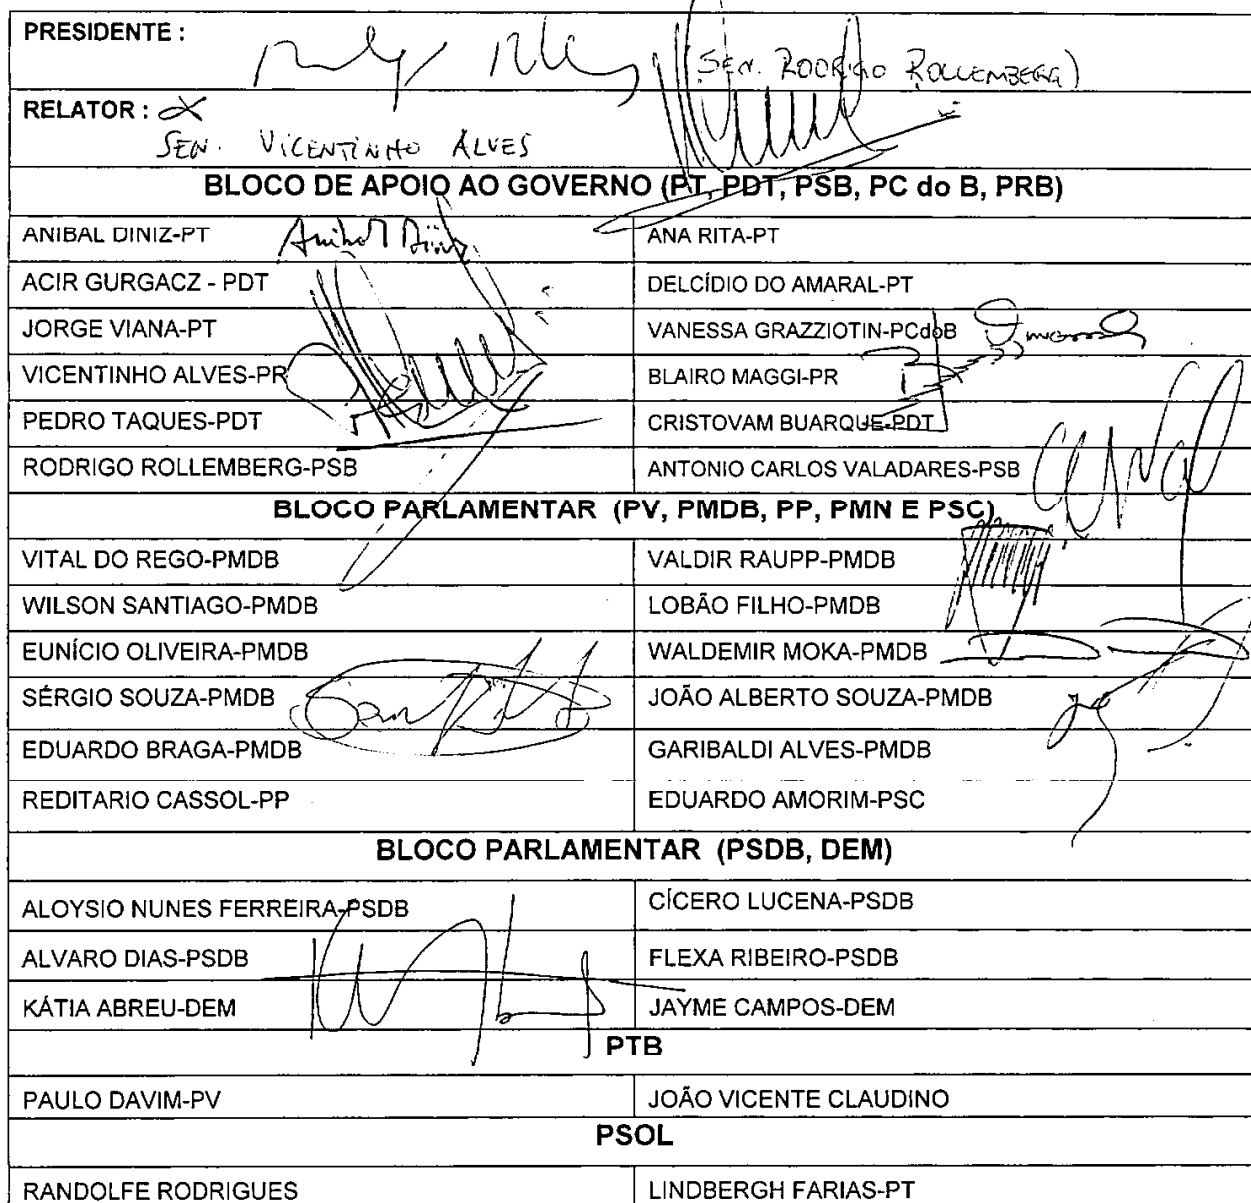 PRESIDENTE :
(SEN. RODRIGO ROLLEMBERG)
RELATOR :
SEN. VICENTINHO ALVES
BLOCO DE APOIO AO GOVERNO (PT, PDT, PSB, PC do B, PRB)
ANIBAL DINIZ-PT Anibal Diniz ANA RITA-PT
ACIR GURGACZ - PDT DELCÍDIO DO AMARAL-PT
JORGE VIANA-PT VANESSA GRAZZIOTIN-PCdoB
VICENTINHO ALVES-PR BLAIRO MAGGI-PR
PEDRO TAQUES-PDT CRISTOVAM BUARQUE-PDT
RODRIGO ROLLEMBERG-PSB ANTONIO CARLOS VALADARES-PSB
BLOCO PARLAMENTAR (PV, PMDB, PP, PMN E PSC)
VITAL DO REGO-PMDB VALDIR RAUPP-PMDB
WILSON SANTIAGO-PMDB LOBÃO FILHO-PMDB
EUNÍCIO OLIVEIRA-PMDB WALDEMIR MOKA-PMDB
SÉRGIO SOUZA-PMDB JOÃO ALBERTO SOUZA-PMDB
EDUARDO BRAGA-PMDB GARIBALDI ALVES-PMDB
REDITARIO CASSOL-PP EDUARDO AMORIM-PSC
BLOCO PARLAMENTAR (PSDB, DEM)
ALOYSIO NUNES FERREIRA-PSDB CÍCERO LUCENA-PSDB
ALVARO DIAS-PSDB FLEXA RIBEIRO-PSDB
KÁTIA ABREU-DEM JAYME CAMPOS-DEM
PTB
PAULO DAVIM-PV JOÃO VICENTE CLAUDINO
PSOL
RANDOLFE RODRIGUES LINDBERGH FARIAS-PT